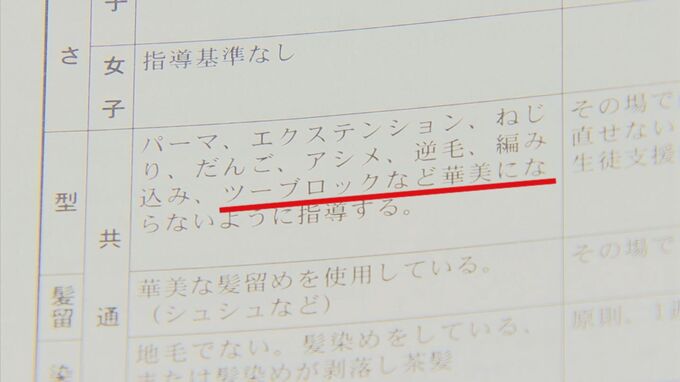 子
さ
女子
指導基準なし
型
共通
パーマ、エクステンション、ねじ
り、だんご、アシメ、逆毛、編み
込み、ツーブロックなど華美にな
らないように指導する。
その場で
直せない
生徒支援
髪留
華美な髪留めを使用している。
（シュシュなど）
その場で
染
地毛でない。髪染めをしている、
または髪染めが剥落し茶髪
原則、1週